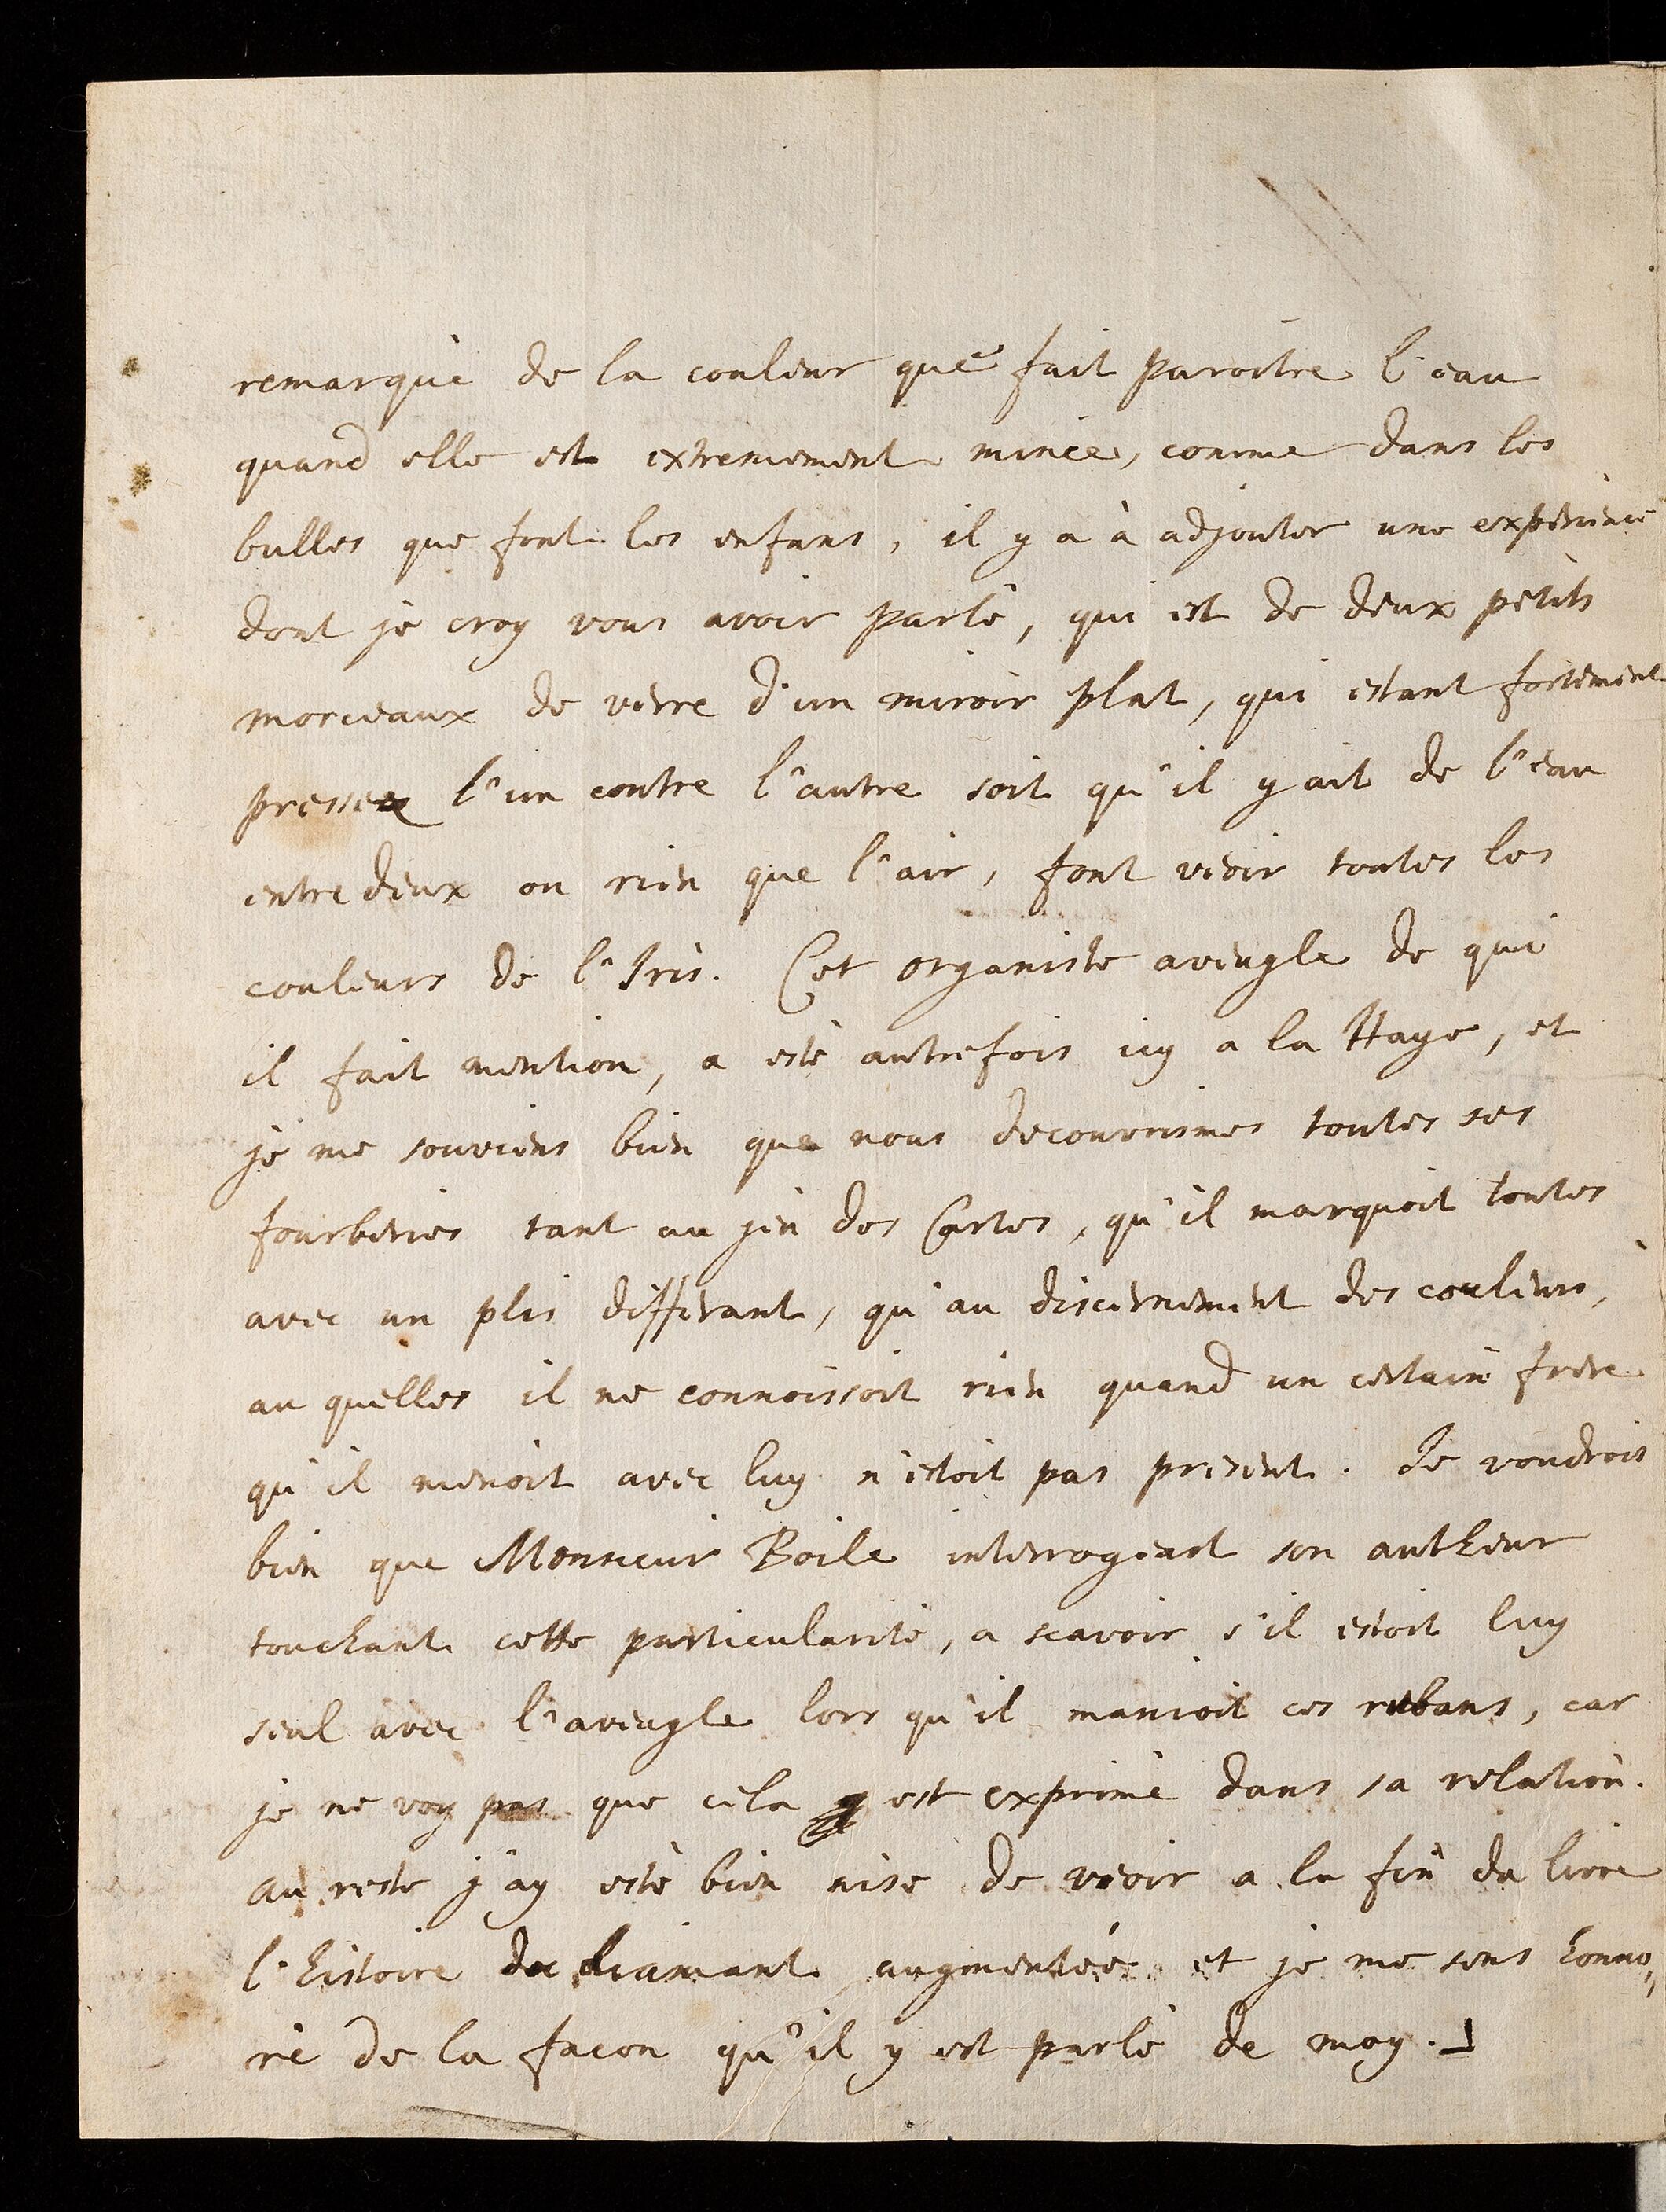 remarquè de la couleur que fait paroitre l'eau
quand elle est extremement mince, comme dans les
bulles que font les enfans, il y a à adjouter une experience
dont je croy vous avoir parlè, qui est de deux petits
morceaux de verre d'un miroir plat, qui estant fortement
pressez l'un contre l'autre soit qu'il y ait de l'eau
entre deux ou rien que l'air, font veoir toutes les
couleurs de l'Iris. Cet organiste aveugle de qui
il fait mention, a estè autrefois icy a la Haye, et
je me souviens bien que nous decouvrismes toutes ses
fourberies tant au jeu des Cartes, qu'il marquoit toutes
avec un plis differant, qu'au discernement des couleurs,
au quelles il ne connoissoit rien quand un certain frere
qu'il menoit avec luy n'estoit pas present. Je voudrois
bien que Monsieur Boile interrogeast son autheur
touchant cette particularitè, a scavoir s'il estoit luy
seul avec l'aveugle lors qu'il manioit ces rubans, car
je ne voy pas que cela est exprimè dans sa relation.
au reste j'ay estè bien aise de veoir a la fin du livre
l'histoire du diamant augmentée et je me sens honno„
rè de la facon qu'il y est parlè de moy.